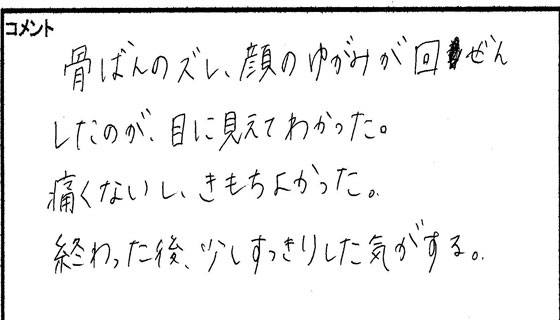 コメント
骨ばんのズレ、顔のゆがみが回ぜん
したのが、目に見えてわかった。
痛くないし、きもちよかった。
終わった後、少しすっきりした気がする。